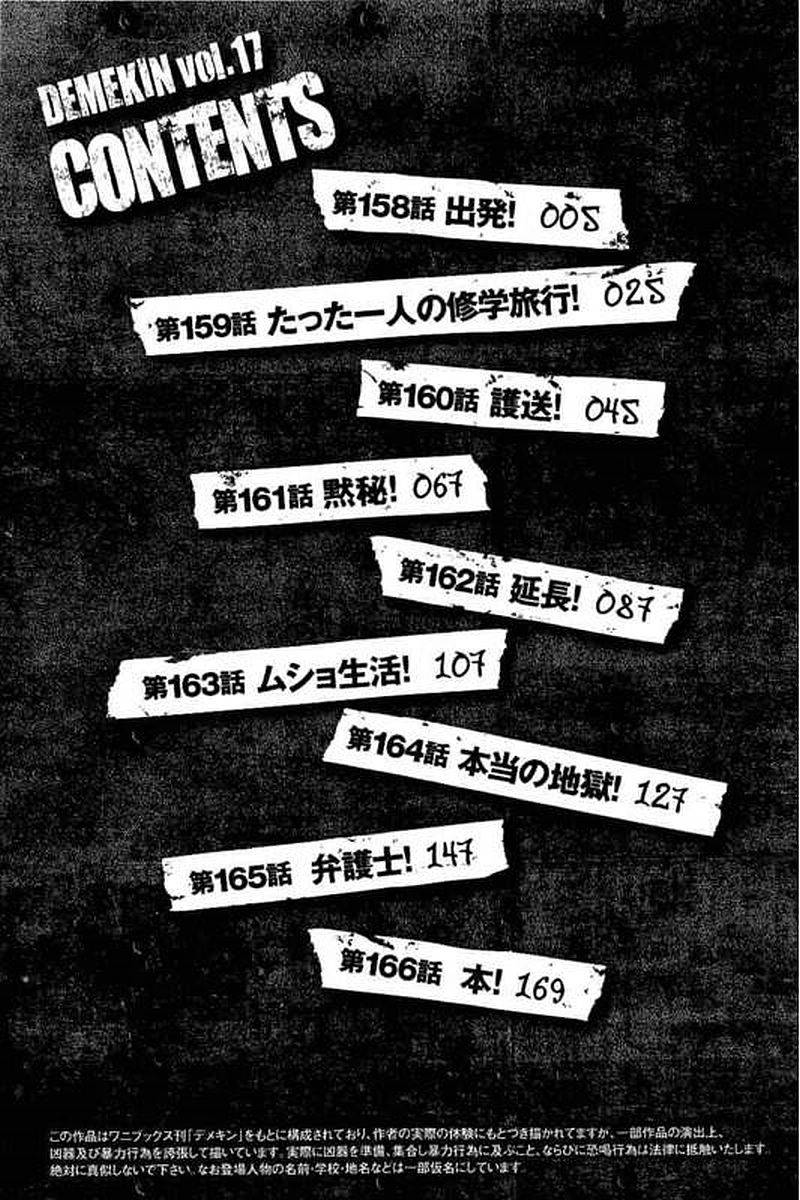 DEMEKIN vol.17
CONTENTS
第158話 出発! 005
第159話 たった一人の修学旅行! 025
第160話 護送! 045
第161話 黙秘! 067
第162話 延長! 087
第163話 ムショ生活! 107
第164話 本当の地獄! 127
第165話 弁護士! 147
第166話 本! 169
この作品はワニブックス刊「デメキン」をもとに構成されており、作者の実際の体験にもとづき描かれてますが、一部作品の演出上、
凶器及び暴力行為を誇張して描いています。実際に凶器を準備、集合し暴力行為に及ぶこと、ならびに恐喝行為は法律に抵触いたします。
絶対に真似しないで下さい。なお登場人物の名前・学校・地名などは一部仮名にしています。